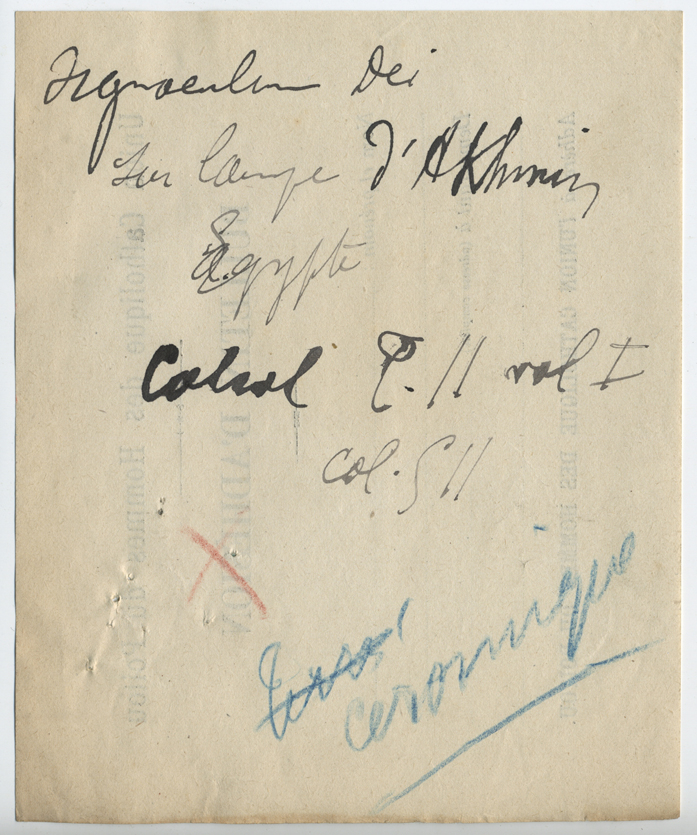 Signaculum Dei
sur lampe d'Akhmin
Egypte
Cabrol T. II vol I
col. 511
ceramique